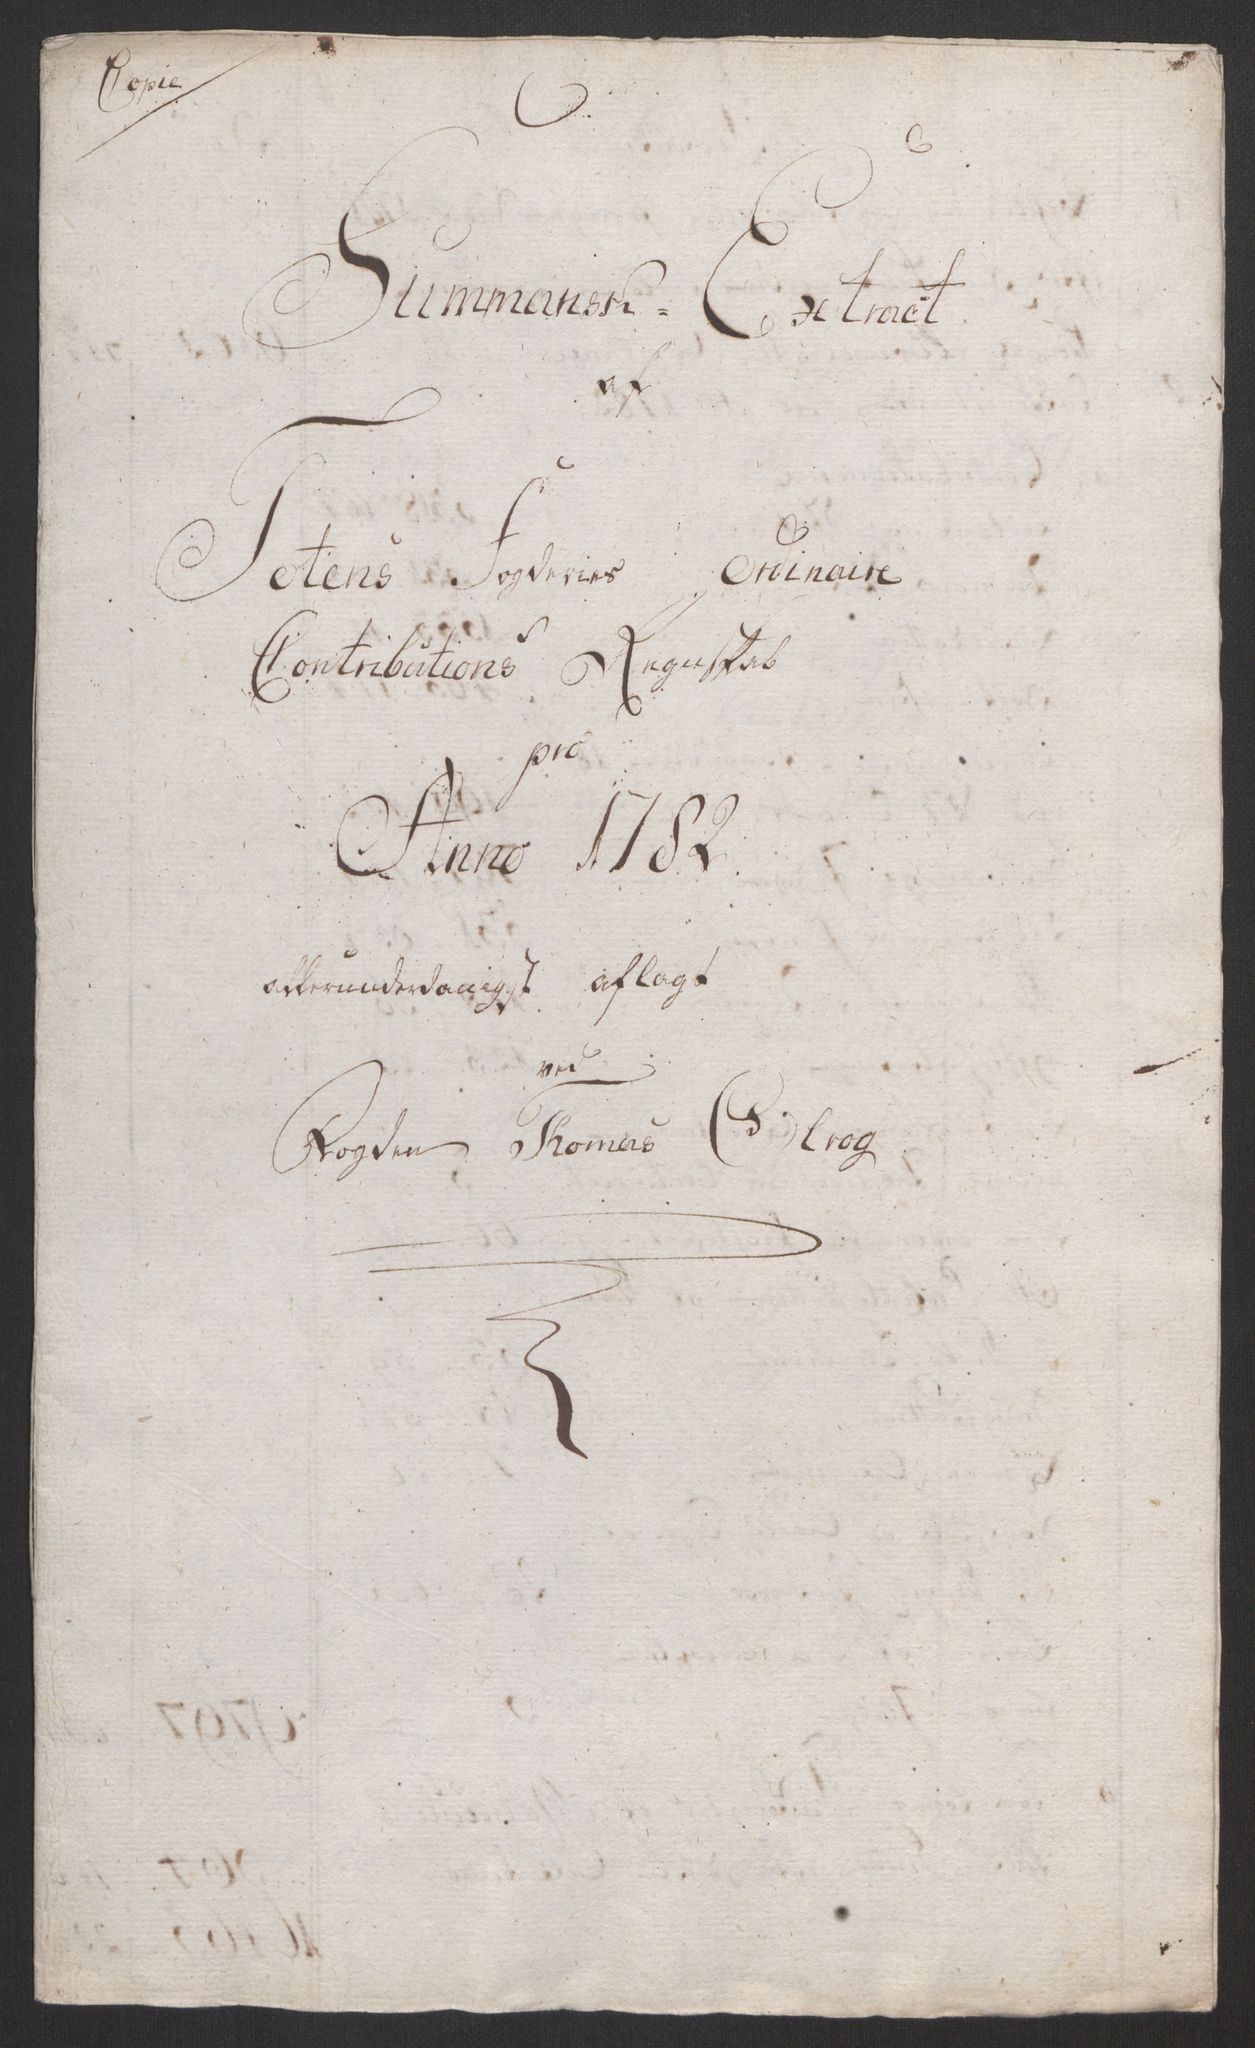 Copie
Summarisk = Extract
af
Totens Fogderies Ordinaire
Contributions Regnskab
pro
Anno 1782
allerunderdanigst aflagt
ved
Fogden Thomas Olrog